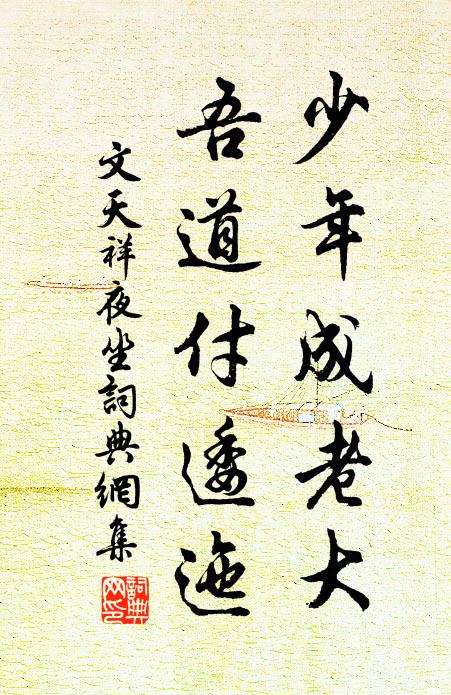 少年成老大
吾道付逶迤
文天祥夜坐詞典網集
詞典
网印